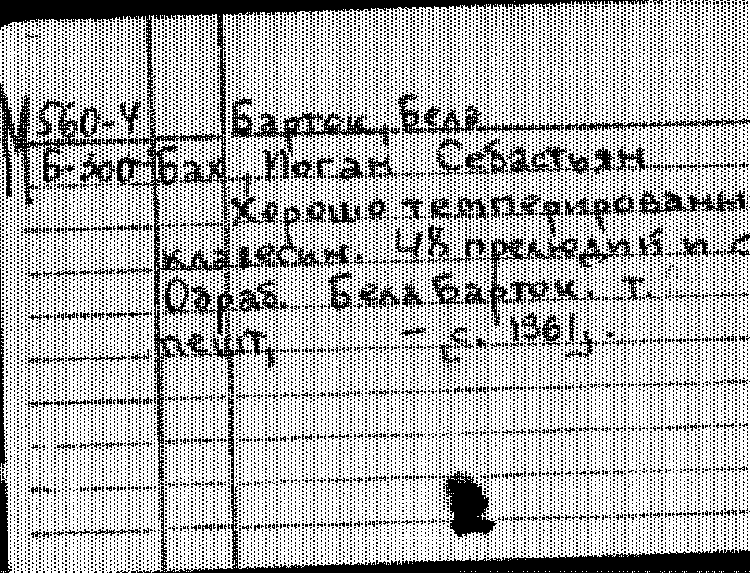 560-4 Барток, Бела
Б-300 Бах, Иоган Себастьян
Хорошо темперированн
клавесин. 48 прелюдий и
Обраб. Бела Барток. т.
пешт, – с. [1961].